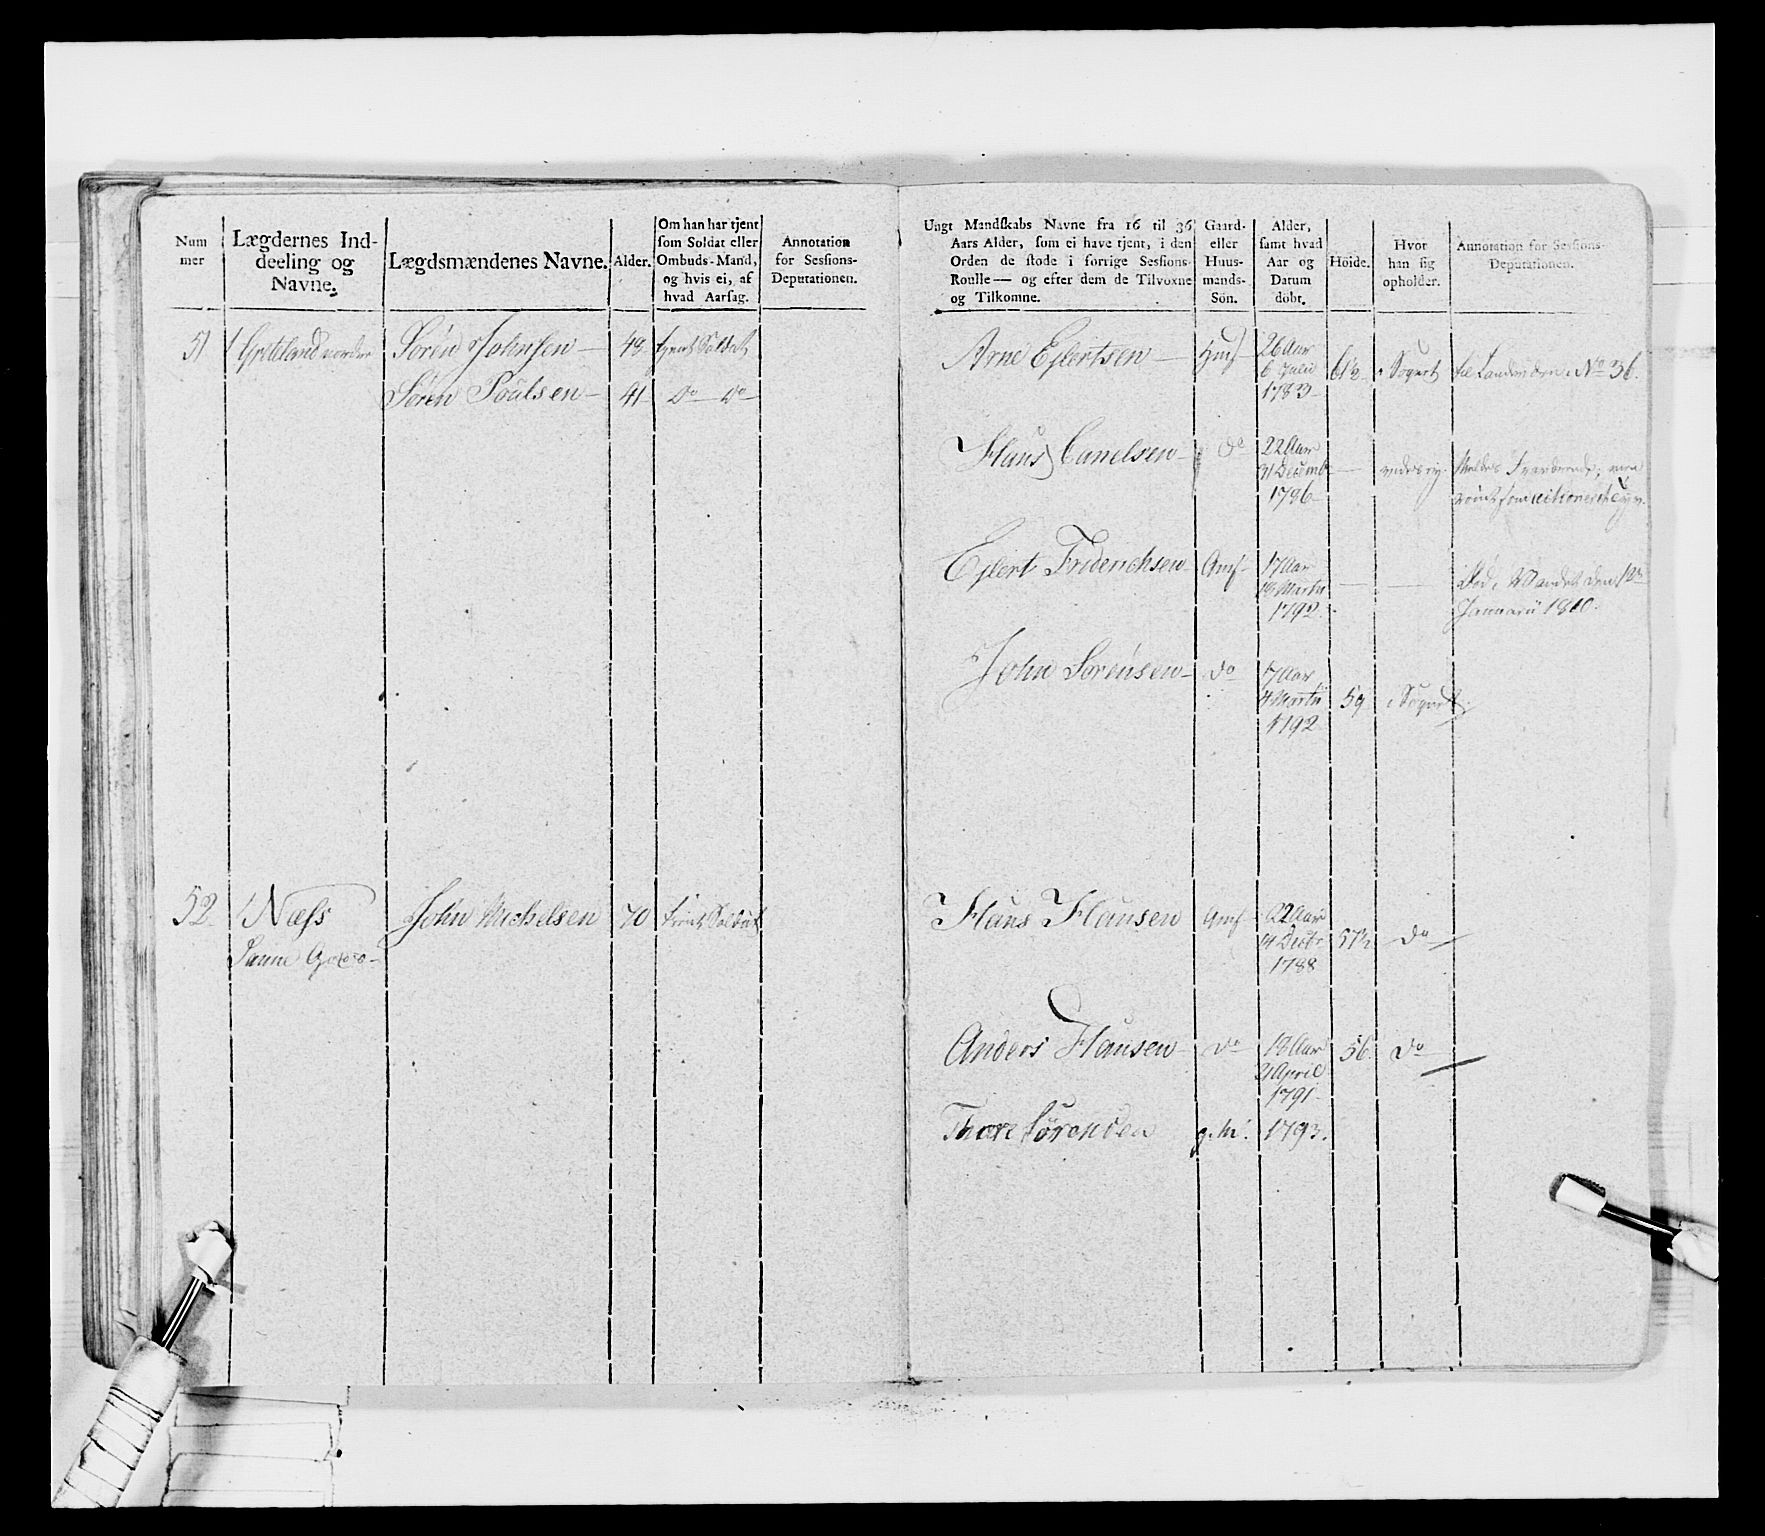 Num
mer
Lægdernes Ind-
deeling og
Navne.
Lægdsmændenes Navne.
Alder.
Om han har tjent
som Soldat eller
Ombuds-Mand,
og hvis ei, af
hvad Aarsag.
Annotation
for Sessions-
Deputationen.
51
Sören Johnsen
tjent Soldat
Sören Poulsen
41
Do Do
52
Næss
John Michelsen
70
tient Soldat
Ungt Mandskabs Navne fra 16 til 36
Aars Alder, som ei have tjent, i den
Orden de stode i forrige Sessions-
Roulle — og efter dem de Tilvoxne
og Tilkomne.
Gaard-
eller
Huus-
mands-
Sön.
Alder,
samt hvad
Aar og
Datum
döbt.
Höide.
Hvor
han sig
opholder.
Annotation for Sessions-
Deputationen.
Arne Ejlertsen
26 Aar
6 Julii
1783
61½
i Sognet
til Landværn No 36.
Hans
Do
22 Aar
31 Decemb
1786
Ejlert Friderichsen
17 Aar
19 Martii
1792
Död i Marts den
Januarii 1810.
John Sörensen
do
17 Aar
4 Martii
1792
59
i Sognet
Hans Hansen
22 Aar
14 Decbr
1788
57½
Do
Anders Hansen
Do
18 Aar
21 April
1791
56
Do
Thore Sörensen
g.M.
1793.